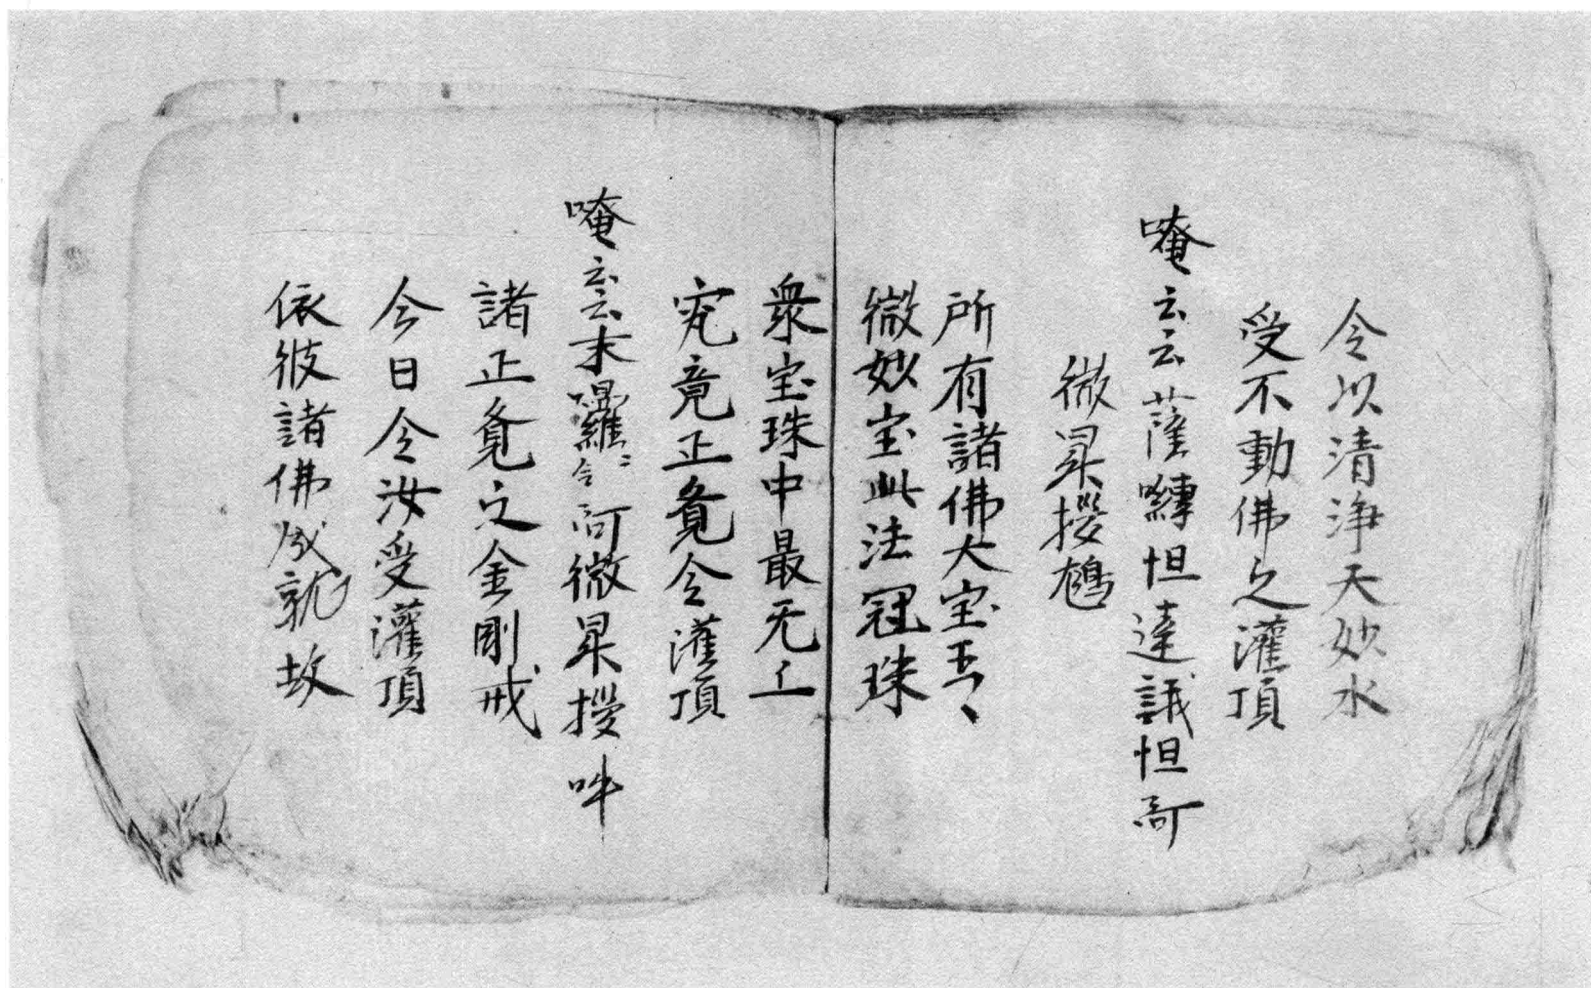 令以清浄天妙水
受不動佛之灌頂
唵云云薩嚩怛達誐怛㖿
微㫒授
所有諸佛大宝
微妙宝此法冠珠
衆宝珠中最无上
究竟正覔令灌頂
唵云云末囉令㖿微㫒授吽
諸正覔之金剛戒
今日令汝受灌頂
依彼諸佛成就故